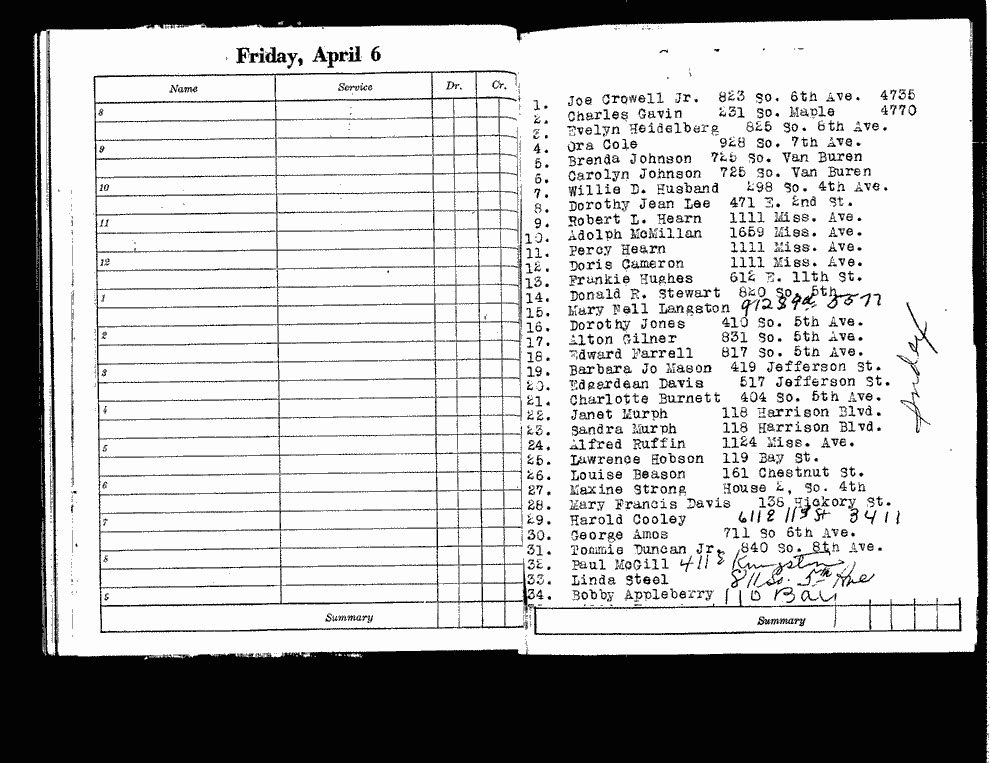 Friday, April 6
Name Service Dr. Cr.
8
9
10
11
12
1
2
3
4
5
6
7
8
9
Summary
1. Joe Crowell Jr. 823 So. 6th Ave. 4735
2. Charles Gavin 231 So. Maple 4770
3. Evelyn Heidelberg 825 So. 8th Ave.
4. Ora Cole 928 So. 7th Ave.
5. Brenda Johnson 725 So. Van Buren
6. Carolyn Johnson 725 So. Van Buren
7. Willie D. Husband 298 So. 4th Ave.
8. Dorothy Jean Lee 471 E. 2nd St.
9. Robert L. Hearn 1111 Miss. Ave.
10. Adolph McMillan 1659 Miss. Ave.
11. Percy Hearn 1111 Miss. Ave.
12. Doris Cameron 1111 Miss. Ave.
13. Frankie Hughes 612 E. 11th St.
14. Donald R. Stewart 820 So. 5th
15. Mary Nell Langston 912
16. Dorothy Jones 410 So. 5th Ave.
17. Alton Gilner 831 So. 5th Ave.
18. Edward Farrell 817 So. 5th Ave.
19. Barbara Jo Mason 419 Jefferson St.
20. Edgardean Davis 517 Jefferson St.
21. Charlotte Burnett 404 So. 5th Ave.
22. Janet Murph 118 Harrison Blvd.
23. Sandra Murph 118 Harrison Blvd.
24. Alfred Ruffin 1124 Miss. Ave.
25. Lawrence Hobson 119 Bay St.
26. Louise Beason 161 Chestnut St.
27. Maxine Strong House 2, So. 4th
28. Mary Francis Davis 136 Hickory St.
29. Harold Cooley 611 E 11th St 3411
30. George Amos 711 So 6th Ave.
31. Tommie Duncan Jr. 840 So. 8th Ave.
32. Paul McGill 411 E Kingston
33. Linda Steel 811 So. 5th Ave
34. Bobby Appleberry 110 Bay
Summary
Andex